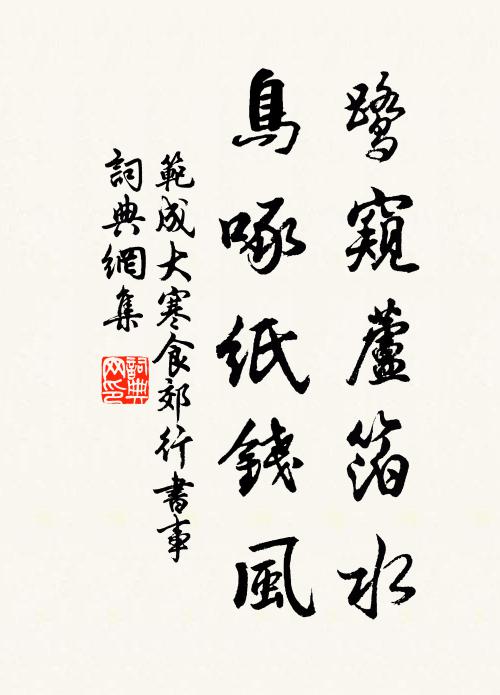 鹭窺蘆箔水
鳥啄紙錢風
範成大寒食郊行書事
詞典網集
詞典网印